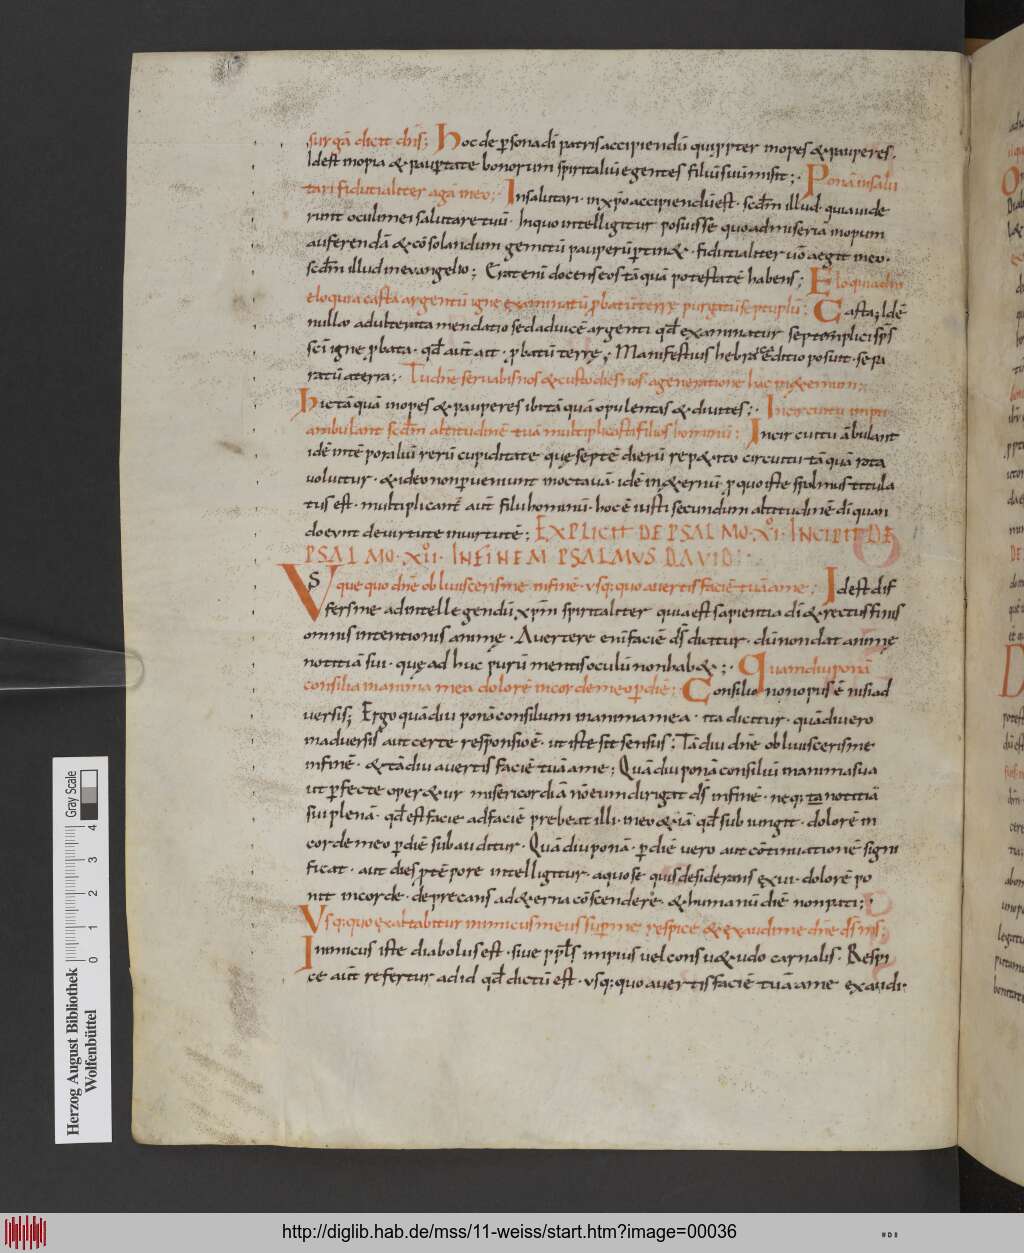 surgā dicit dn̄s; Hoc de ꝑsona dī patris accipiendū qui ꝓpter inopes & pauperes.
Idest inopia & pauꝑtate bonorum spiritaliū egentes filiū suū misit;· Ponā in salu
tari fiducialiter agā in eo;· In salutari· in xp̄o accipiendū est· scd̄m illud· quia uide
runt oculi mei salutare tuū· In quo intelligitur posuisse quo ad miseriā inopum
auferendā & cōsolandum gemitū pauperū ꝑtin&· fiducialiter uō aegit in eo·
scd̄m illud in euangelio; Erat eni docens eos tāquā potestatē habens; Eloquia dn̄i
eloquia casta argentū igne examinatū ꝓbatū terrę purgatū septuplū; Casta; Idē
nulla adulterata mendatio sed ad uicē argenti qd̄ examinatur septemplici sp̄s
sc̄i igne ꝓbata· qd̄ aut̄ ait· ꝓbatū terrę; Manifestius hebrea editio posuit· sepa
ratū a terra;· Tu dn̄e seruabis nos & custodies nos· a generatione hac in &ernum;
Hic tāquā inopes & pauperes ibi tāquā opulentas & diuites;· In circuitu impii
ambulant scd̄m altitudinē tuā multiplicasti filios hominū; In circuitu ābulant
idē in tēporaliū rerū cupiditate quę septē dierū rep&ito circuitu tāquā rota
uoluitur· & ideo non ꝑueniunt in octauā· idē in &ernū ꝓ quo iste psalmus titula
tus est· multiplicant̄ aut̄ filii hominū· hoc ē iusti secundum altitudinē dī quan
do eunt de uirtute in uirtutē; EXPLICIT DE PSALMO· XI· INCIPIT DE
PSALMO· XII· IN FINEM PSALMUS DAUID
Vsque quo dn̄e obliuisceris me in finē· usq; quo auertis faciē tuā a me; Idest dif
fers me ad intellegendū xp̄m spiritaliter quia est sapientia dī & rectus finis
omnis intentionis animę· Auertere eni faciē ds̄ dicitur· dū non dat animę
notitiā sui· quę ad huc purū mentis oculū non hab&;· Quamdiu ponā
consilia in anima mea dolorē in corde meo ꝑ diē; Consilio non opus ē nisi ad
uersis; Ergo quādiu ponā consilium in anima mea· ita dicitur· quādiu ero
in aduersis aut certe responsio ē· ut iste sit sensus; Tādiu dn̄e obliuisceris me
in finē· & tādiu auertis faciē tuā a me; Quādiu ponā consiliū in anima sua
ut ꝑfecte oper&ur misericordiā nō eum dirigat ds̄ in finē· neq; ita notitiā
sui plenā· qd̄ est facie ad faciē prebeat illi· in eo &iā qd̄ subiungit· dolorē in
corde meo ꝑ diē subauditur· Quādiu ponā· ꝑ diē uero aut cōtinuationē signi
ficat· aut dies ꝓ tēpore intelligitur· a quo se quis desiderans exui· dolorē po
nit in corde· deprecans ad &erna cōscendere· & humanū diē non pati;
Vsq; quo exaltabitur inimicus meus suꝑ me respice & exaudi me dn̄e ds̄ ms̄;
Inimicus iste diabolus est· siue ppl̄s impius uel consu&udo carnalis· Respi
ce aut̄ refertur ad id qd̄ dictū est· usq; quo auertis faciē tuā a me exaudi·
Herzog August Bibliothek
Wolfenbüttel
0 1 2 3 4
Gray Scale
http://diglib.hab.de/mss/11-weiss/start.htm?image=00036